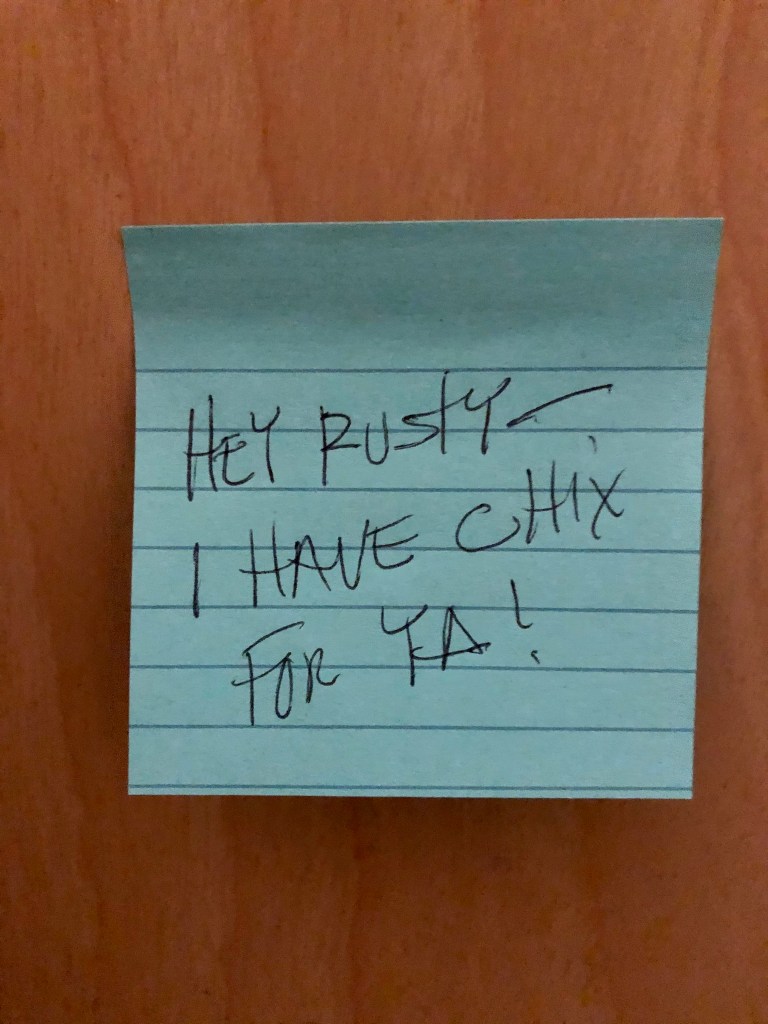 HEY RUSTY—
I HAVE CHIX
FOR YA!